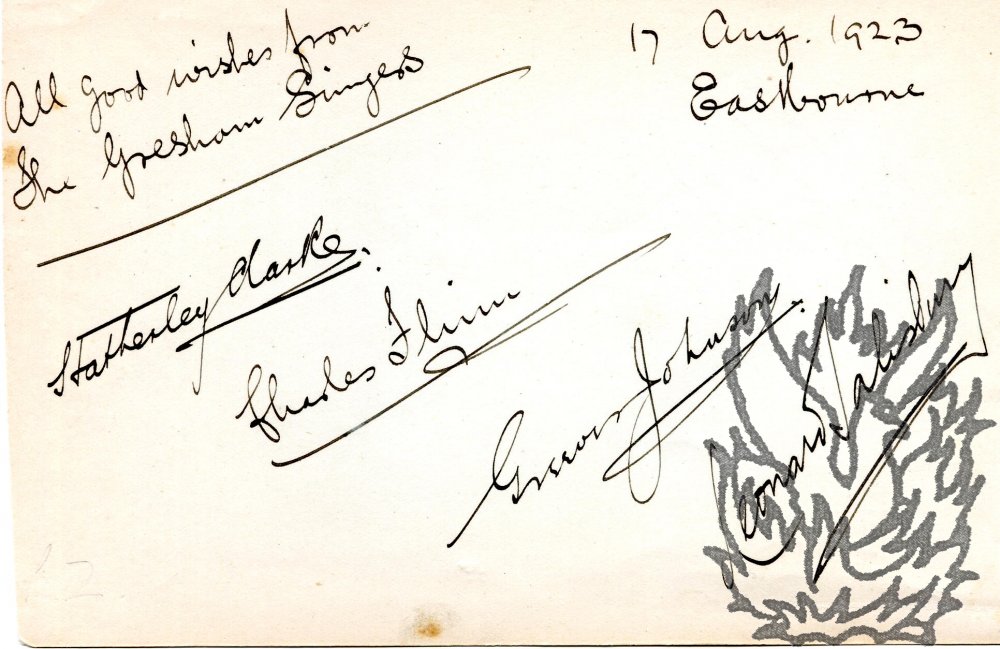 All good wishes from
The Gresham Singers
17 Aug. 1923
Eastbourne
Statherley Clarke.
Charles Flinn
Greaves Johnson.
Leonard Salisbury